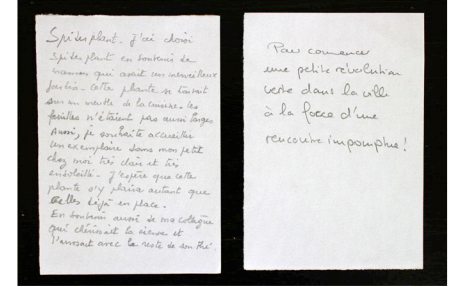 Spider plant - J'ai choisi
Spider plant en souvenir de
maman qui avait un merveilleux
jardin. Cette plante se trouvait
sur un meuble de la cuisine. Les
feuilles n'étaient pas aussi larges
Aussi, je souhaite accueillir
un exemplaire dans mon petit
chez moi très clair et très
ensoleillé. J'espère que cette
plante s'y plaira autant que
celles déjà en place.
En souvenir aussi de ma collègue
qui chérissait la sienne et
l'arrosait avec le reste de son thé.
Pour commencer
une petite révolution
verte dans la ville
à la force d'une
rencontre impromptue !